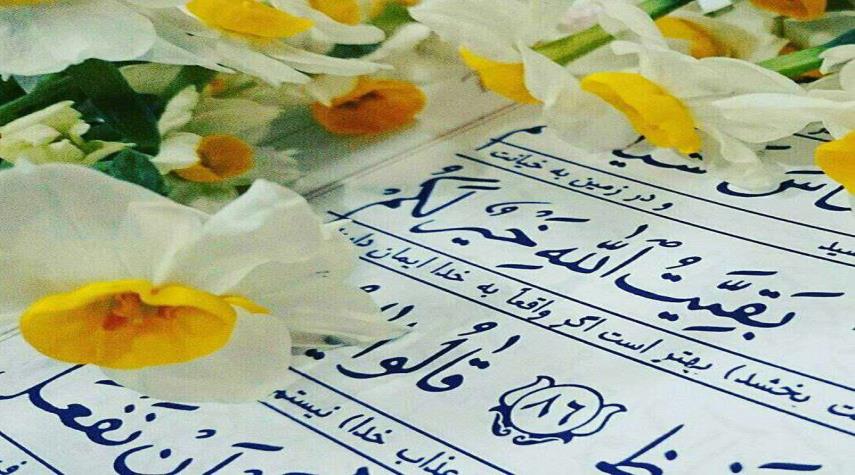 و در زمین به خیانت
بَقِیَّتُ اللّٰهِ خَیْرٌ لَکُمْ
بخشد) بهتر است اگر واقعاً به خدا ایمان
۸۶ قٰالُوا
عذاب خدا) نیستم
اَنْ نَفْعَلَ